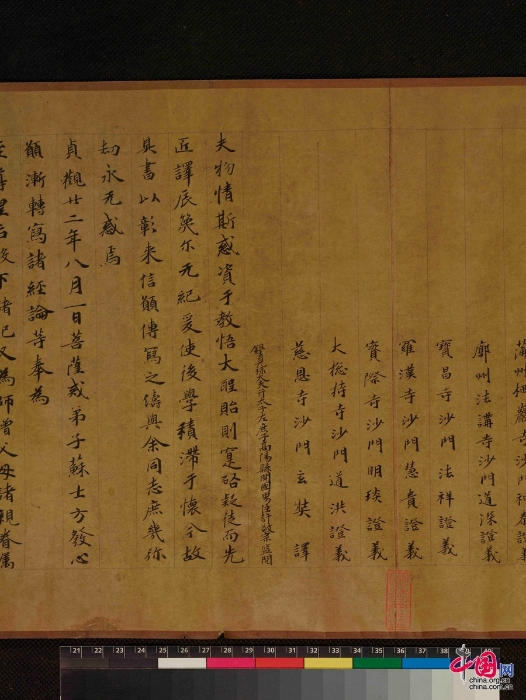 蒲州栖巖寺沙門神泰證義
廓州法講寺沙門道深證義
寶昌寺沙門法祥證義
羅漢寺沙門慧貴證義
實際寺沙門明琰證義
大惣持寺沙門道洪證義
慈恩寺沙門玄奘譯
銀青光祿大夫行太子左庶子高陽縣開國男臣許敬宗監閱
夫物情斯惑資于教悟大聖貽則寔啓疑徒而先
匠譯辰奠尒无紀爰使後學積滯于懷今故
具書以彰来信願傳寫之儔與余同志庶幾弥
劫永无惑焉
貞觀廿二年八月一日菩薩戒弟子蘇士方發心
願漸轉寫諸經論等奉為
至尊皇后殿下儲妃又為師僧父母諸親眷屬
中国网
china.org.cn
china.com.cn